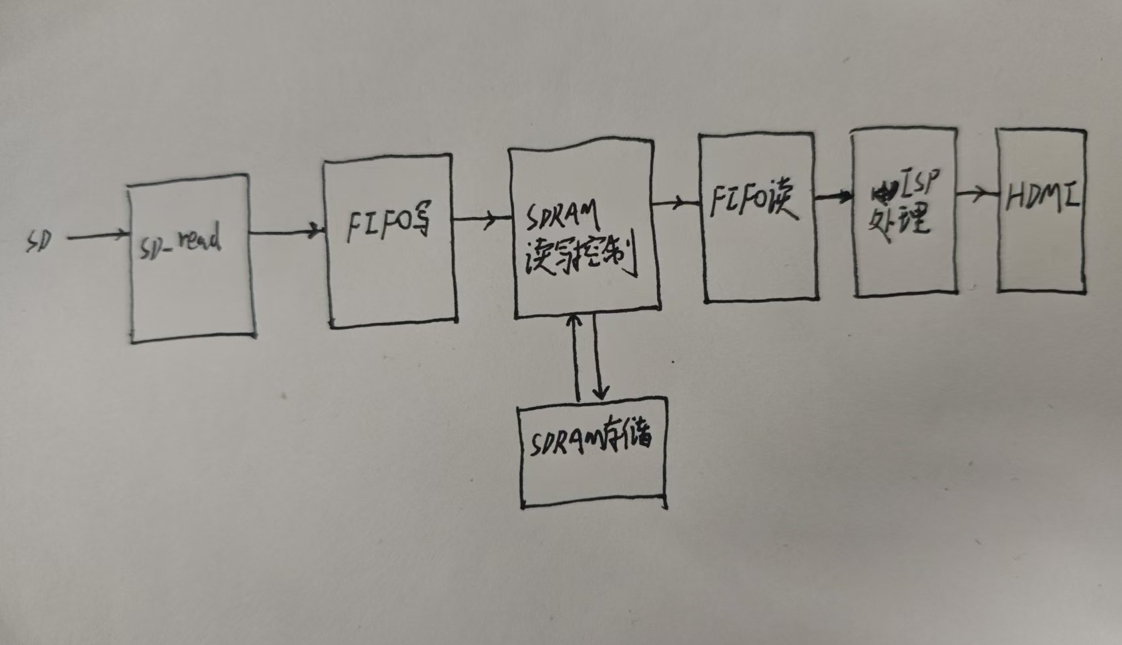 SD
SD_read
FIFO写
SDRAM
读写控制
FIFO读
ISP
处理
HDMI
SDRAM存储